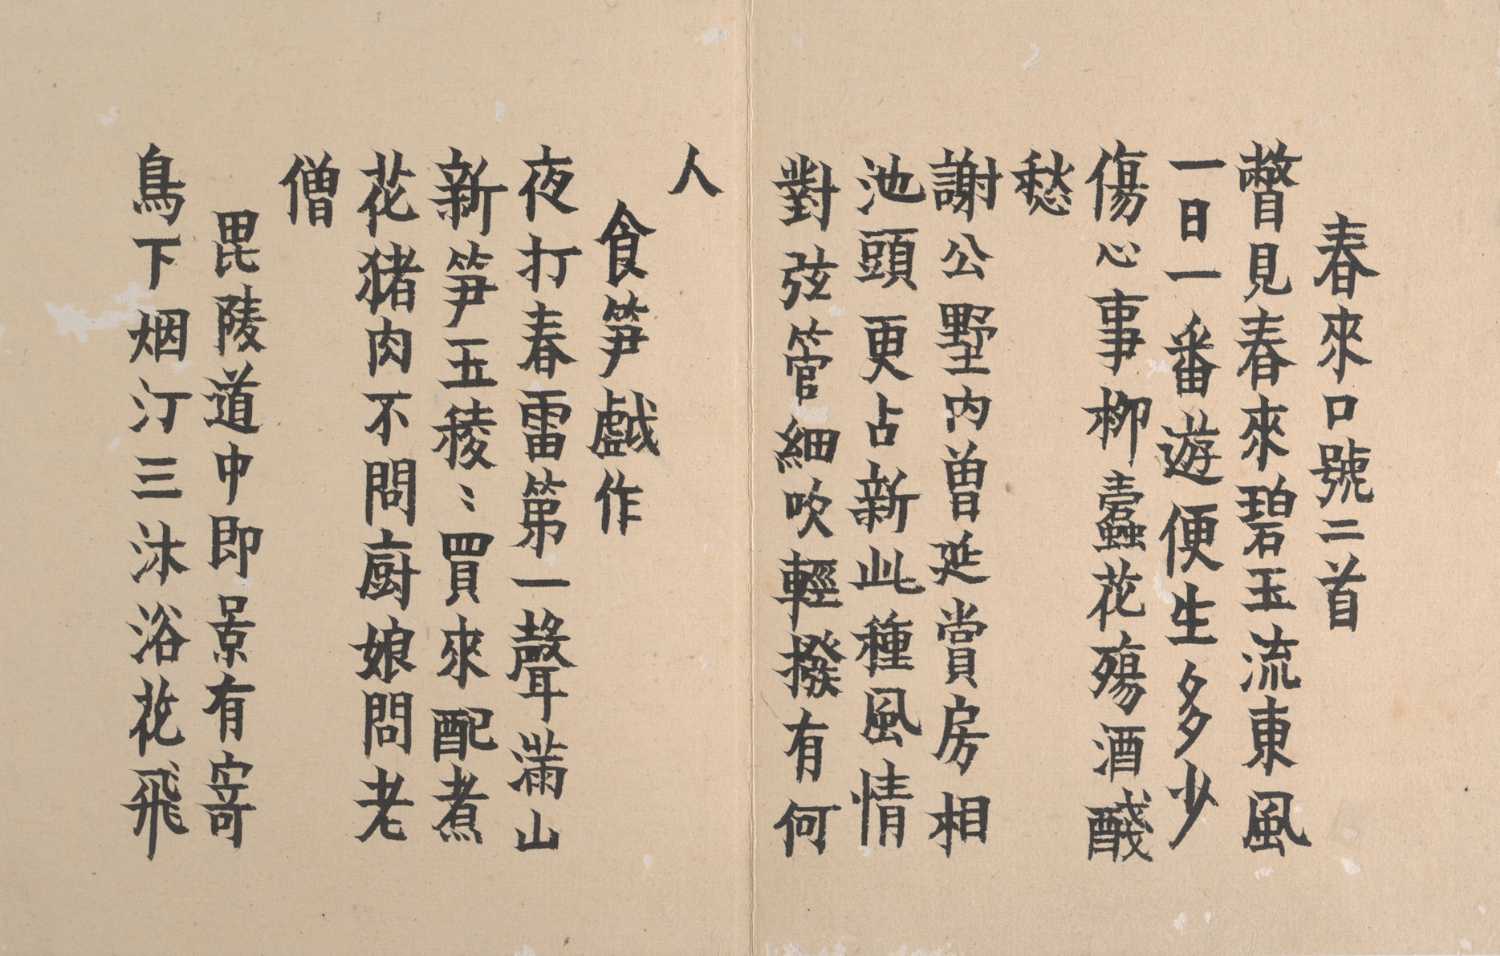 春來口號二首
瞥見春來碧玉流東風
一日一番遊便生多少
傷心事柳蠹花殤酒醆
愁
謝公墅内曾延賞房相
池頭更占新此種風情
對弦管細吹輕撥有何
人
食笋戲作
夜打春雷第一聲滿山
新笋玉稜〻買來配煮
花猪肉不問厨娘問老
僧
毘陵道中即景有寄
鳥下烟汀三沐浴花飛